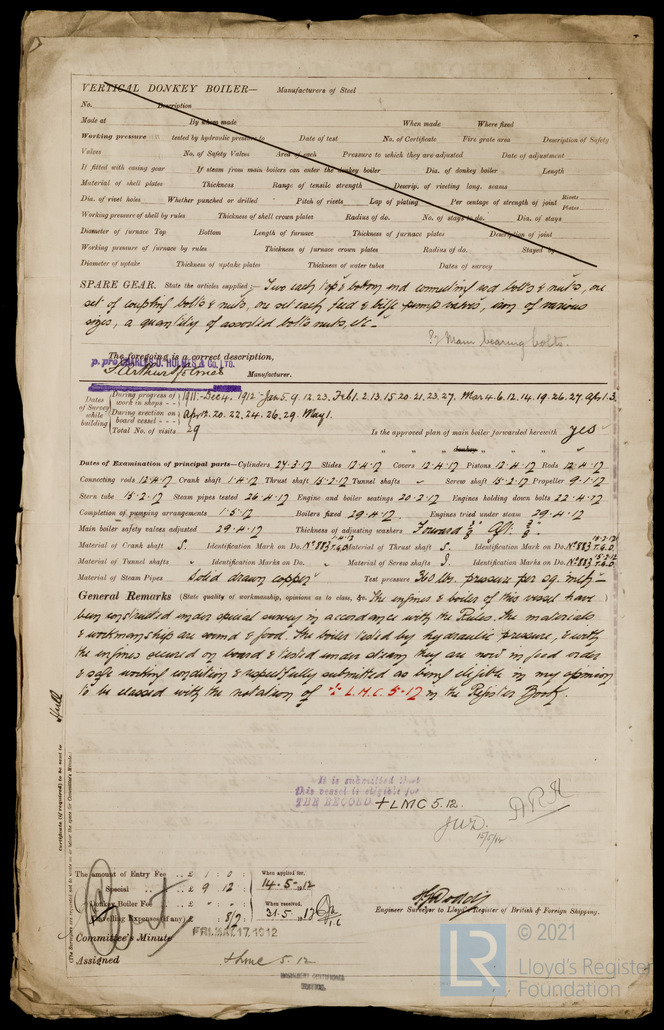 VERTICAL DONKEY BOILER— Manufacturers of Steel
No. Description
Made at By whom made When made Where fixed
Working pressure tested by hydraulic pressure to Date of test No. of Certificate Fire grate area Description of Safety
Valves No. of Safety Valves Area of each Pressure to which they are adjusted Date of adjustment
If fitted with easing gear If steam from main boilers can enter the donkey boiler Dia. of donkey boiler Length
Material of shell plates Thickness Range of tensile strength Descrip. of riveting long. seams
Dia. of rivet holes Whether punched or drilled Pitch of rivets Lap of plating Per centage of strength of joint Rivets Plates
Working pressure of shell by rules Thickness of shell crown plates Radius of do. No. of stays to do. Dia. of stays
Diameter of furnace Top Bottom Length of furnace Thickness of furnace plates Description of joint
Working pressure of furnace by rules Thickness of furnace crown plates Radius of do. Stayed by
Diameter of uptake Thickness of uptake plates Thickness of water tubes Dates of survey
SPARE GEAR. State the articles supplied:— Two each top & bottom end connecting rod bolts & nuts, one
set of coupling bolts & nuts, one set each feed & bilge pump valves, iron of various
sizes, a quantity of assorted bolts nuts, etc—
?2 Main bearing bolts.
The foregoing is a correct description,
p. pro CHARLES D. HOLMES & Co. LTD.
Manufacturer.
Dates of Survey while building
During progress of work in shops - - 1911:- Dec 4. 1912 - Jan 5. 9. 12. 23. Feb 1. 2. 13. 15. 20. 21. 23. 27. Mar 4. 6. 12. 14. 19. 26. 27. Apr 1. 3.
During erection on board vessel - - - Apr 12. 20. 22. 24. 26. 29. May 1.
Total No. of visits 29 Is the approved plan of main boiler forwarded herewith yes
" " " donkey " "
Dates of Examination of principal parts—Cylinders 27.3.12 Slides 12.4.12 Covers 12.4.12 Pistons 12.4.12 Rods 12.4.12
Connecting rods 12.4.12 Crank shaft 1.4.12 Thrust shaft 15.2.12 Tunnel shafts Screw shaft 15.2.12 Propeller 9.1.12
Stern tube 15.2.12 Steam pipes tested 26.4.12 Engine and boiler seatings 20.2.12 Engines holding down bolts 22.4.12
Completion of pumping arrangements 1.5.12 Boilers fixed 29.4.12 Engines tried under steam 29.4.12
Main boiler safety valves adjusted 29.4.12 Thickness of adjusting washers Forward 3/8 Aft. 3/8
Material of Crank shaft S. Identification Mark on Do. No 883 T.G.D. 1.4.12 Material of Thrust shaft S. Identification Mark on Do. No 883 T.G.D. 15.2.12
Material of Tunnel shafts " Identification Marks on Do. " Material of Screw shafts S. Identification Marks on Do. No 883 T.G.D. 15.2.12
Material of Steam Pipes Solid drawn copper Test pressure 360 lbs. pressure per sq. inch—
General Remarks (State quality of workmanship, opinions as to class, &c. The engines & boiler of this vessel have
been constructed under special survey in accordance with the Rules. The materials
& workmanship are sound & good. The boiler tested by hydraulic pressure, & with
the engines secured on board & tested under steam they are now in good order
& safe working condition & respectfully submitted as being eligible in my opinion
to be classed with the notation of + L.M.C. 5-12 in the Register Book.
Hull
Certificate (if required) to be sent to
(The Surveyors are requested not to write on or below the space for Committee's Minute.)
It is submitted that
this vessel is eligible for
THE RECORD. + LMC 5.12.
J.W.D.
15/5/12
The amount of Entry Fee .. £ 1 : 0 :
Special .. .. £ 9 : 12 :
Donkey Boiler Fee .. .. £ " : " :
Travelling Expenses (if any) £ : 8/2 :
When applied for,
14.5.1912
When received,
31.5.1912
Engineer Surveyor to Lloyd's Register of British & Foreign Shipping.
Committee's Minute FRI. MAY. 17. 1912
Assigned + LMC 5.12
LR © 2021
Lloyd's Register
Foundation